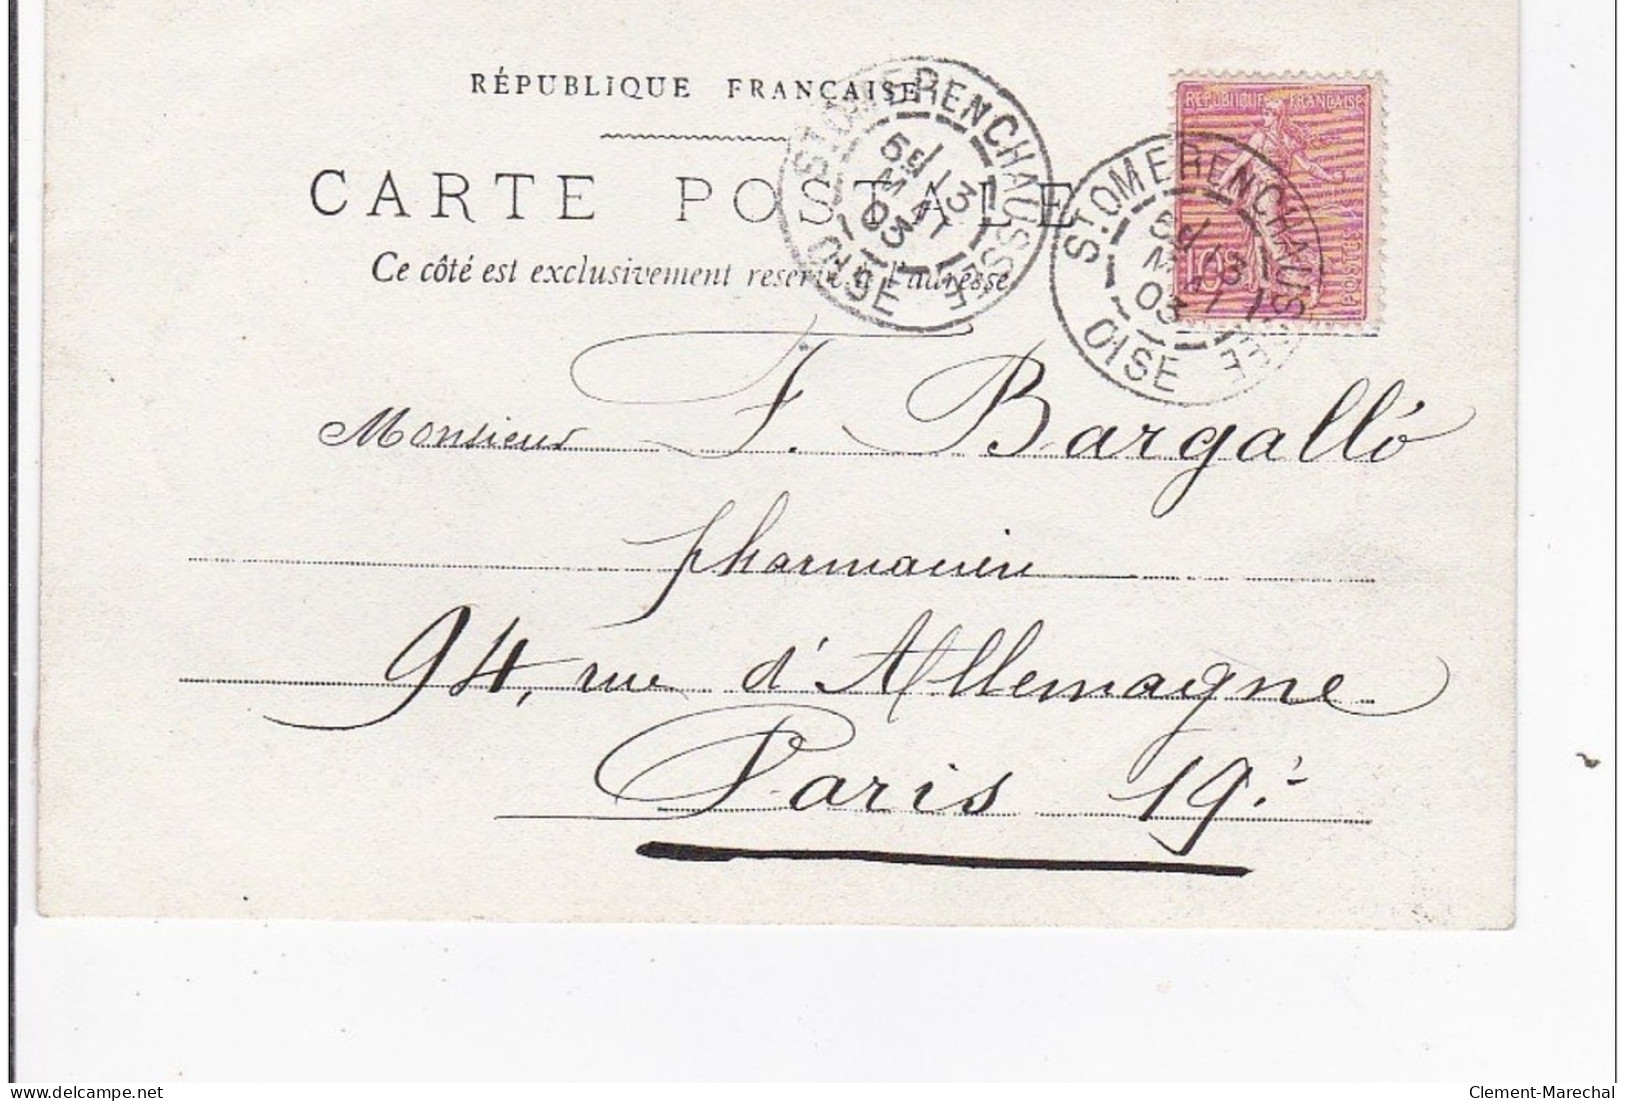 RÉPUBLIQUE FRANÇAISE
CARTE POSTALE
Ce côté est exclusivement réservé à l'adresse
ST OMER EN CHAUSSÉE
13
MAI
03
OISE
RÉPUBLIQUE FRANÇAISE
10
POSTES
ST OMER EN CHAUSSÉE
13
MAI
03
OISE
Monsieur F. Bargalló
pharmacien
94, rue d'Allemagne
Paris 19.
delcampe.net
Clement-Marechal